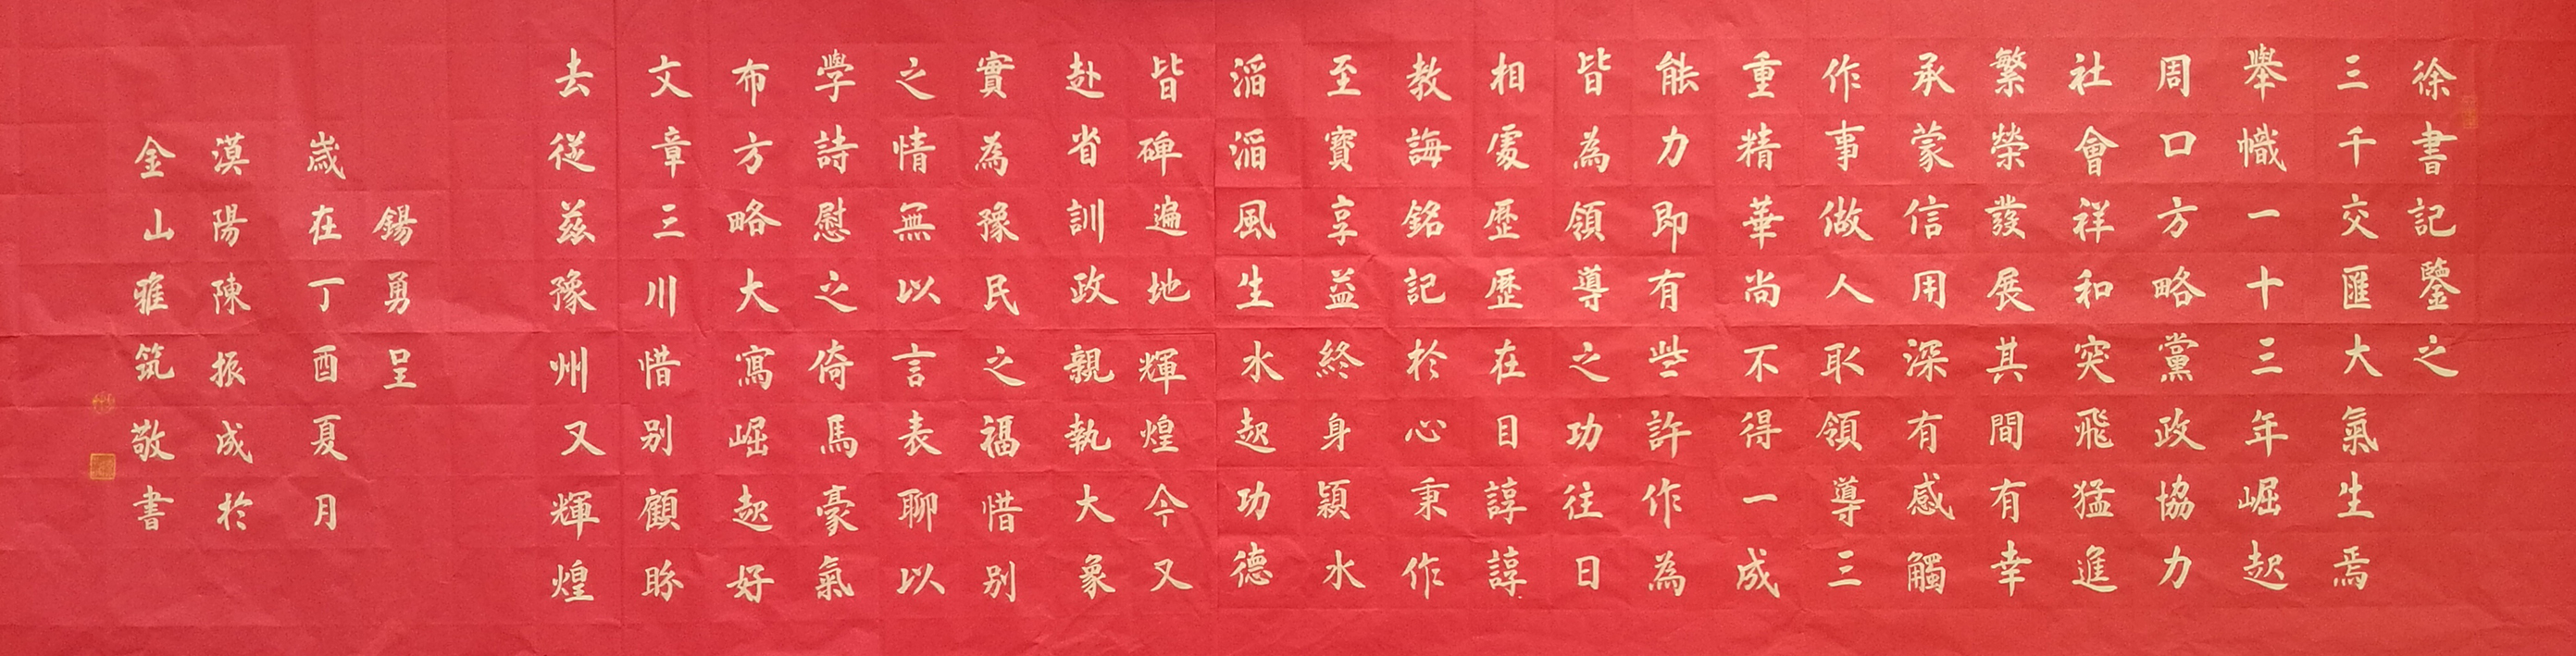 徐書記鑒之
三千交匯大氣生焉
舉幟一十三年崛起
周口方略黨政協力
社會祥和突飛猛進
繁榮發展其間有幸
承蒙信用深有感觸
作事做人取領導三
重精華尚不得一成
能力即有些許作為
皆為領導之功往日
相處歷歷在目諄諄
教誨銘記於心秉作
至寶享益終身潁水
滔滔風生水起功德
皆碑遍地輝煌今又
赴省訓政親執大象
實為豫民之福惜別
之情無以言表聊以
學詩慰之倚馬豪氣
布方略大寫崛起好
文章三川惜別顧盼
去從茲豫州又輝煌
錫勇呈
歲在丁酉夏月
漠陽陳振成於
金山雅筑敬書